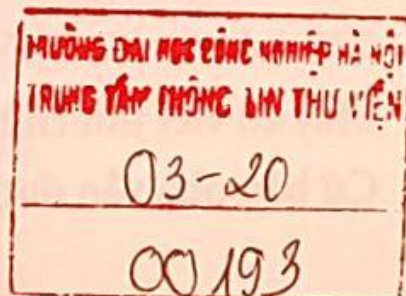 TRƯỜNG ĐẠI HỌC CÔNG NGHIỆP HÀ NỘI
TRUNG TÂM THÔNG TIN THƯ VIỆN
03-20
00193